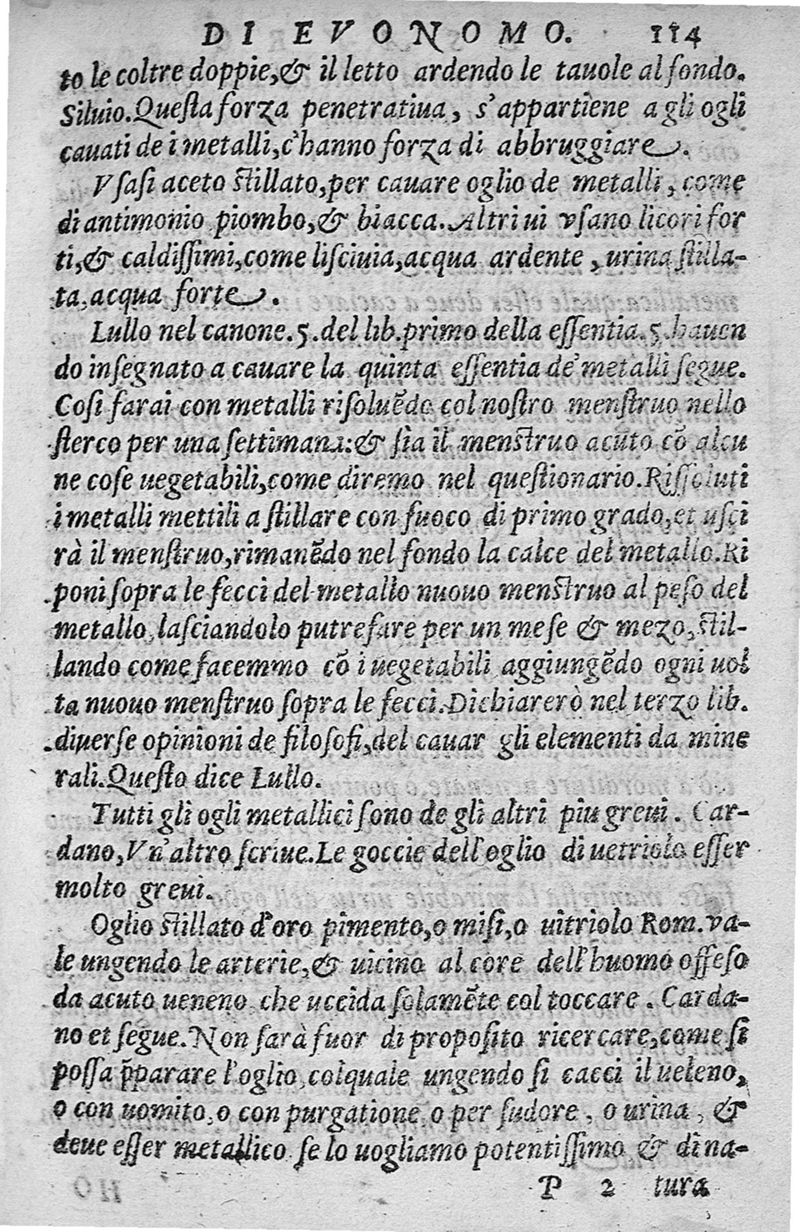 DI EVONOMO. 114
to le coltre doppie,& il letto ardendo le tauole al fondo.
Siluio.Questa forza penetratiua, s'appartiene a gli ogli
cauati de i metalli,c'hanno forza di abbruggiare.
Vsasi aceto stillato,per cauare oglio de metalli, come
di antimonio piombo,& biacca.Altri ui vsano licori for
ti,& caldissimi,come lisciuia,acqua ardente, urina stilla-
ta,acqua forte.
Lullo nel canone.5.del lib.primo della essentia.5.hauen
do insegnato a cauare la quinta essentia de' metalli segue.
Cosi farai con metalli risoluẽdo col nostro menstruo nello
sterco per una settimana:& sia il menstruo acuto cõ alcu
ne cose uegetabili,come diremo nel questionario.Rissoluti
i metalli mettili a stillare con fuoco di primo grado,et usci
rà il menstruo,rimanẽdo nel fondo la calce del metallo.Ri
poni sopra le fecci del metallo nuouo menstruo al peso del
metallo,lasciandolo putrefare per un mese & mezo,stil-
lando come facemmo cõ i uegetabili aggiungẽdo ogni uol
ta nuouo menstruo sopra le fecci.Dichiarerò nel terzo lib.
diuerse opinioni de filosofi,del cauar gli elementi da mine
rali.Questo dice Lullo.
Tutti gli ogli metallici sono de gli altri piu greui. Car-
dano,Vn'altro scriue.Le goccie dell'oglio di uetriolo esser
molto greui.
Oglio stillato d'oro pimento,o misi,o uitriolo Rom.va-
le ungendo le arterie,& uicino al core dell'huomo offeso
da acuto ueneno che uccida solamẽte col toccare. Carda-
no et segue.Non sarà fuor di proposito ricercare,come si
possa p̄parare l'oglio,colquale ungendo si cacci il ueleno,
o con uomito,o con purgatione,o per sudore, o urina, &
deue esser metallico se lo uogliamo potentissimo & di na-
P 2 tura